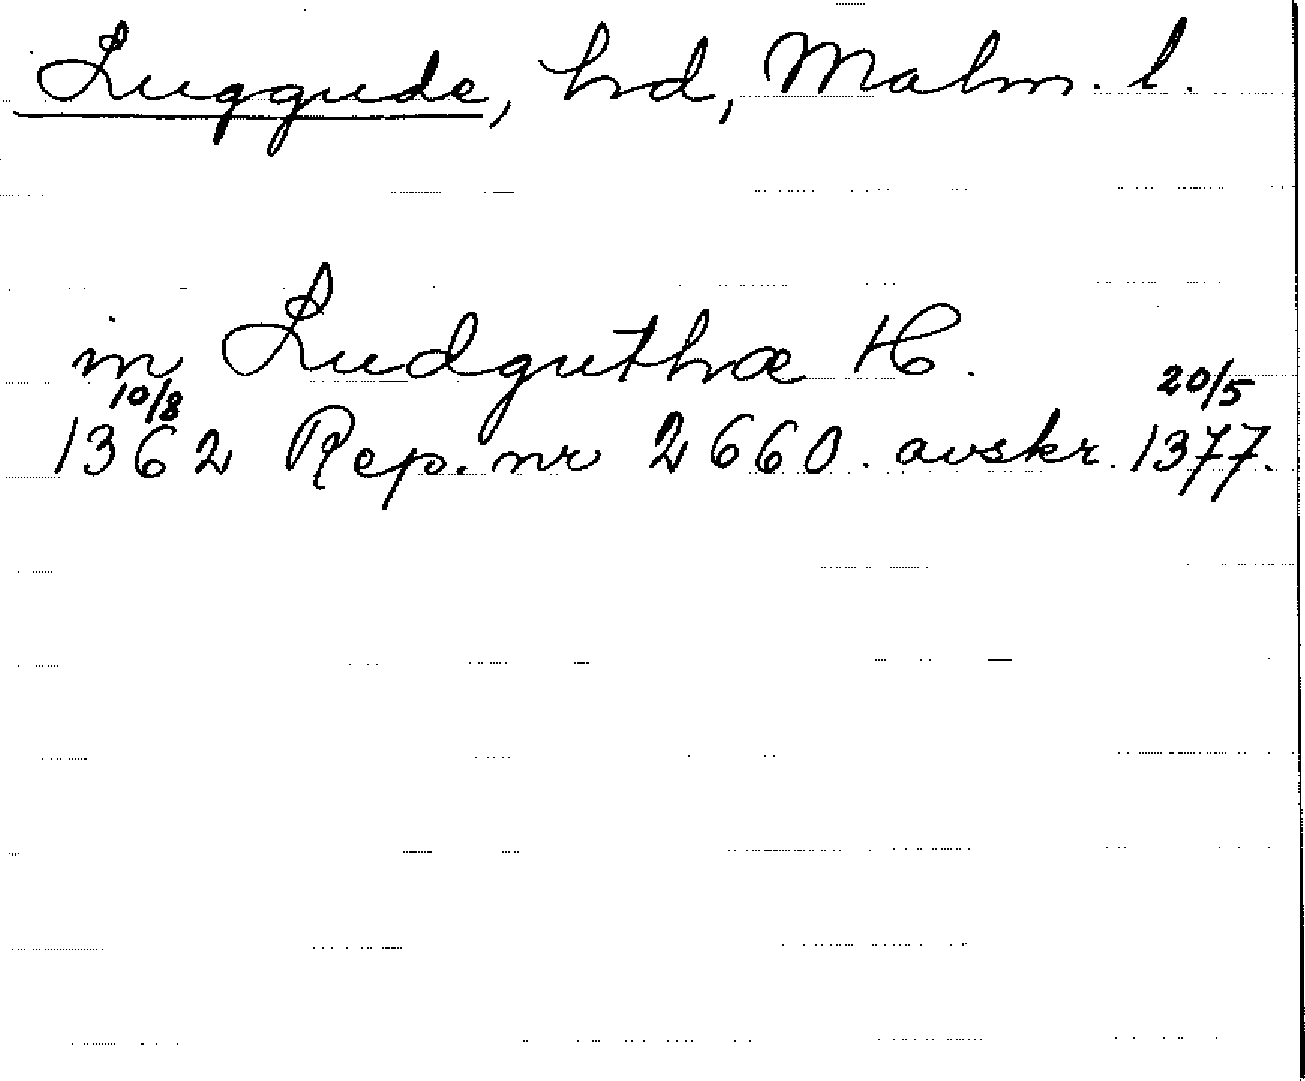 Luggude, hd, Malm. l.
in Ludguthæ H.
10/8 20/5
1362 Rep. nr 2660. avskr. 1377.